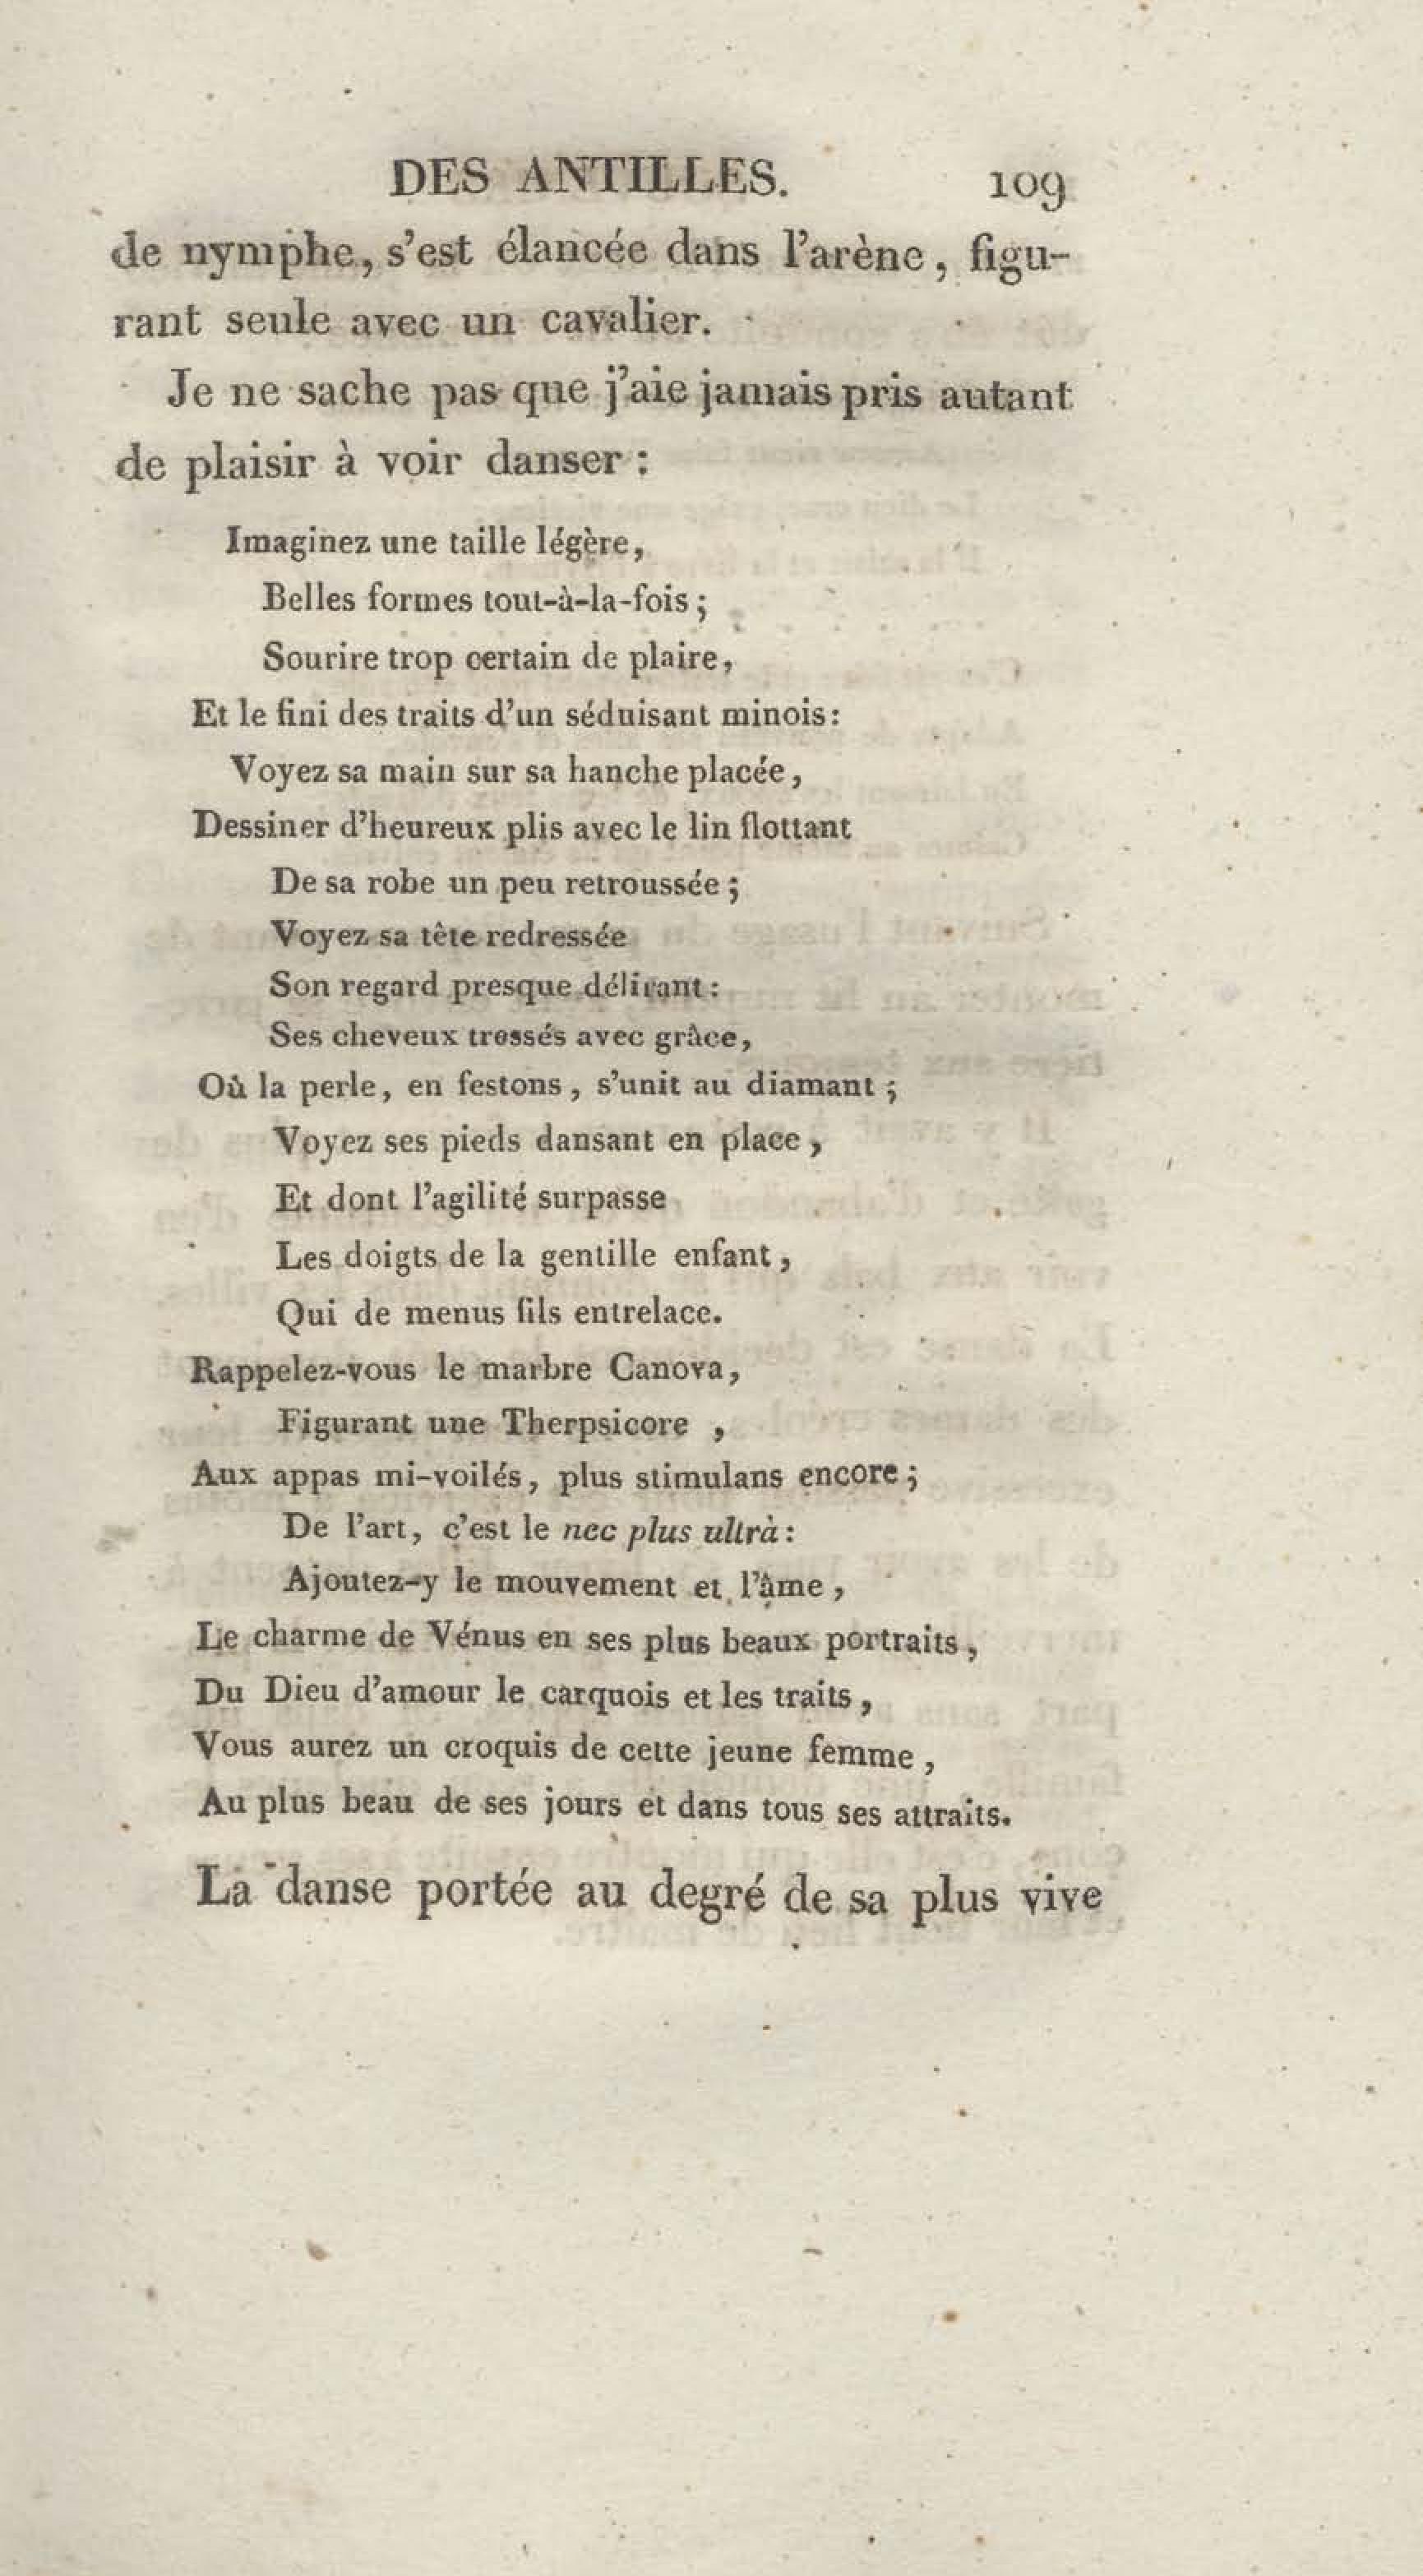 DES ANTILLES. 109
de nymphe, s'est élancée dans l'arène, figu-
rant seule avec un cavalier.
Je ne sache pas que j'aie jamais pris autant
de plaisir à voir danser :
Imaginez une taille légère,
Belles formes tout-à-la-fois ;
Sourire trop certain de plaire,
Et le fini des traits d'un séduisant minois:
Voyez sa main sur sa hanche placée,
Dessiner d'heureux plis avec le lin flottant
De sa robe un peu retroussée ;
Voyez sa tête redressée
Son regard presque délirant :
Ses cheveux tressés avec grâce,
Où la perle, en festons, s'unit au diamant ;
Voyez ses pieds dansant en place,
Et dont l'agilité surpasse
Les doigts de la gentille enfant,
Qui de menus fils entrelace.
Rappelez-vous le marbre Canova,
Figurant une Therpsicore ,
Aux appas mi-voilés, plus stimulans encore ;
De l'art, c'est le nec plus ultrà :
Ajoutez-y le mouvement et l'âme ,
Le charme de Vénus en ses plus beaux portraits ,
Du Dieu d'amour le carquois et les traits ,
Vous aurez un croquis de cette jeune femme ,
Au plus beau de ses jours et dans tous ses attraits.
La danse portée au degré de sa plus vive